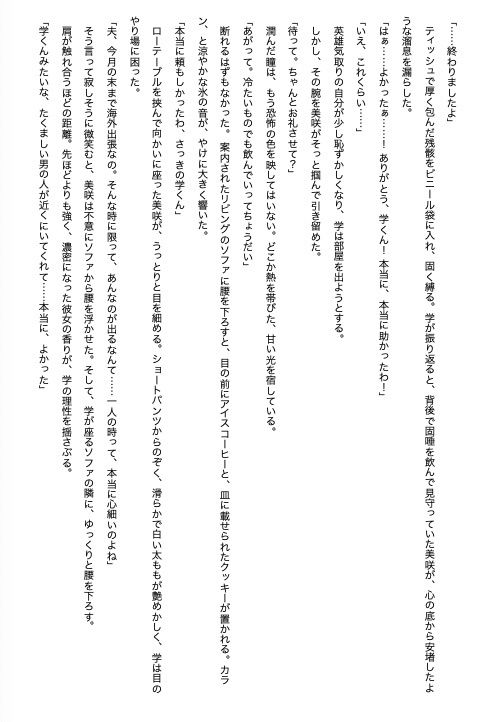 「……終わりましたよ」
ティッシュで厚く包んだ残骸をビニール袋に入れ、固く縛る。学が振り返ると、背後で固唾を飲んで見守っていた美咲が、心の底から安堵したよ
うな溜息を漏らした。
「はぁ……よかったぁ……！ ありがとう、学くん！ 本当に、本当に助かったわ！」
「いえ、これくらい……」
英雄気取りの自分が少し恥ずかしくなり、学は部屋を出ようとする。
しかし、その腕を美咲がそっと掴んで引き留めた。
「待って。ちゃんとお礼させて？」
潤んだ瞳は、もう恐怖の色を映してはいない。どこか熱を帯びた、甘い光を宿している。
「あがって。冷たいものでも飲んでいってちょうだい」
断れるはずもなかった。案内されたリビングのソファに腰を下ろすと、目の前にアイスコーヒーと、皿に載せられたクッキーが置かれる。カラ
ン、と涼やかな氷の音が、やけに大きく響いた。
「本当に頼もしかったわ、さっきの学くん」
ローテーブルを挟んで向かいに座った美咲が、うっとりと目を細める。ショートパンツからのぞく、滑らかで白い太ももが艶めかしく、学は目の
やり場に困った。
「夫、今月の末まで海外出張なの。そんな時に限って、あんなのが出るなんて……一人の時って、本当に心細いのよね」
そう言って寂しそうに微笑むと、美咲は不意にソファから腰を浮かせた。そして、学が座るソファの隣に、ゆっくりと腰を下ろす。
肩が触れ合うほどの距離。先ほどよりも強く、濃密になった彼女の香りが、学の理性を揺さぶる。
「学くんみたいな、たくましい男の人が近くにいてくれて……本当に、よかった」